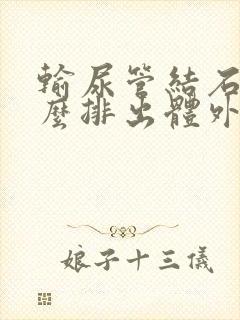 輸尿管結石
麼排出體外
娘子十三儀